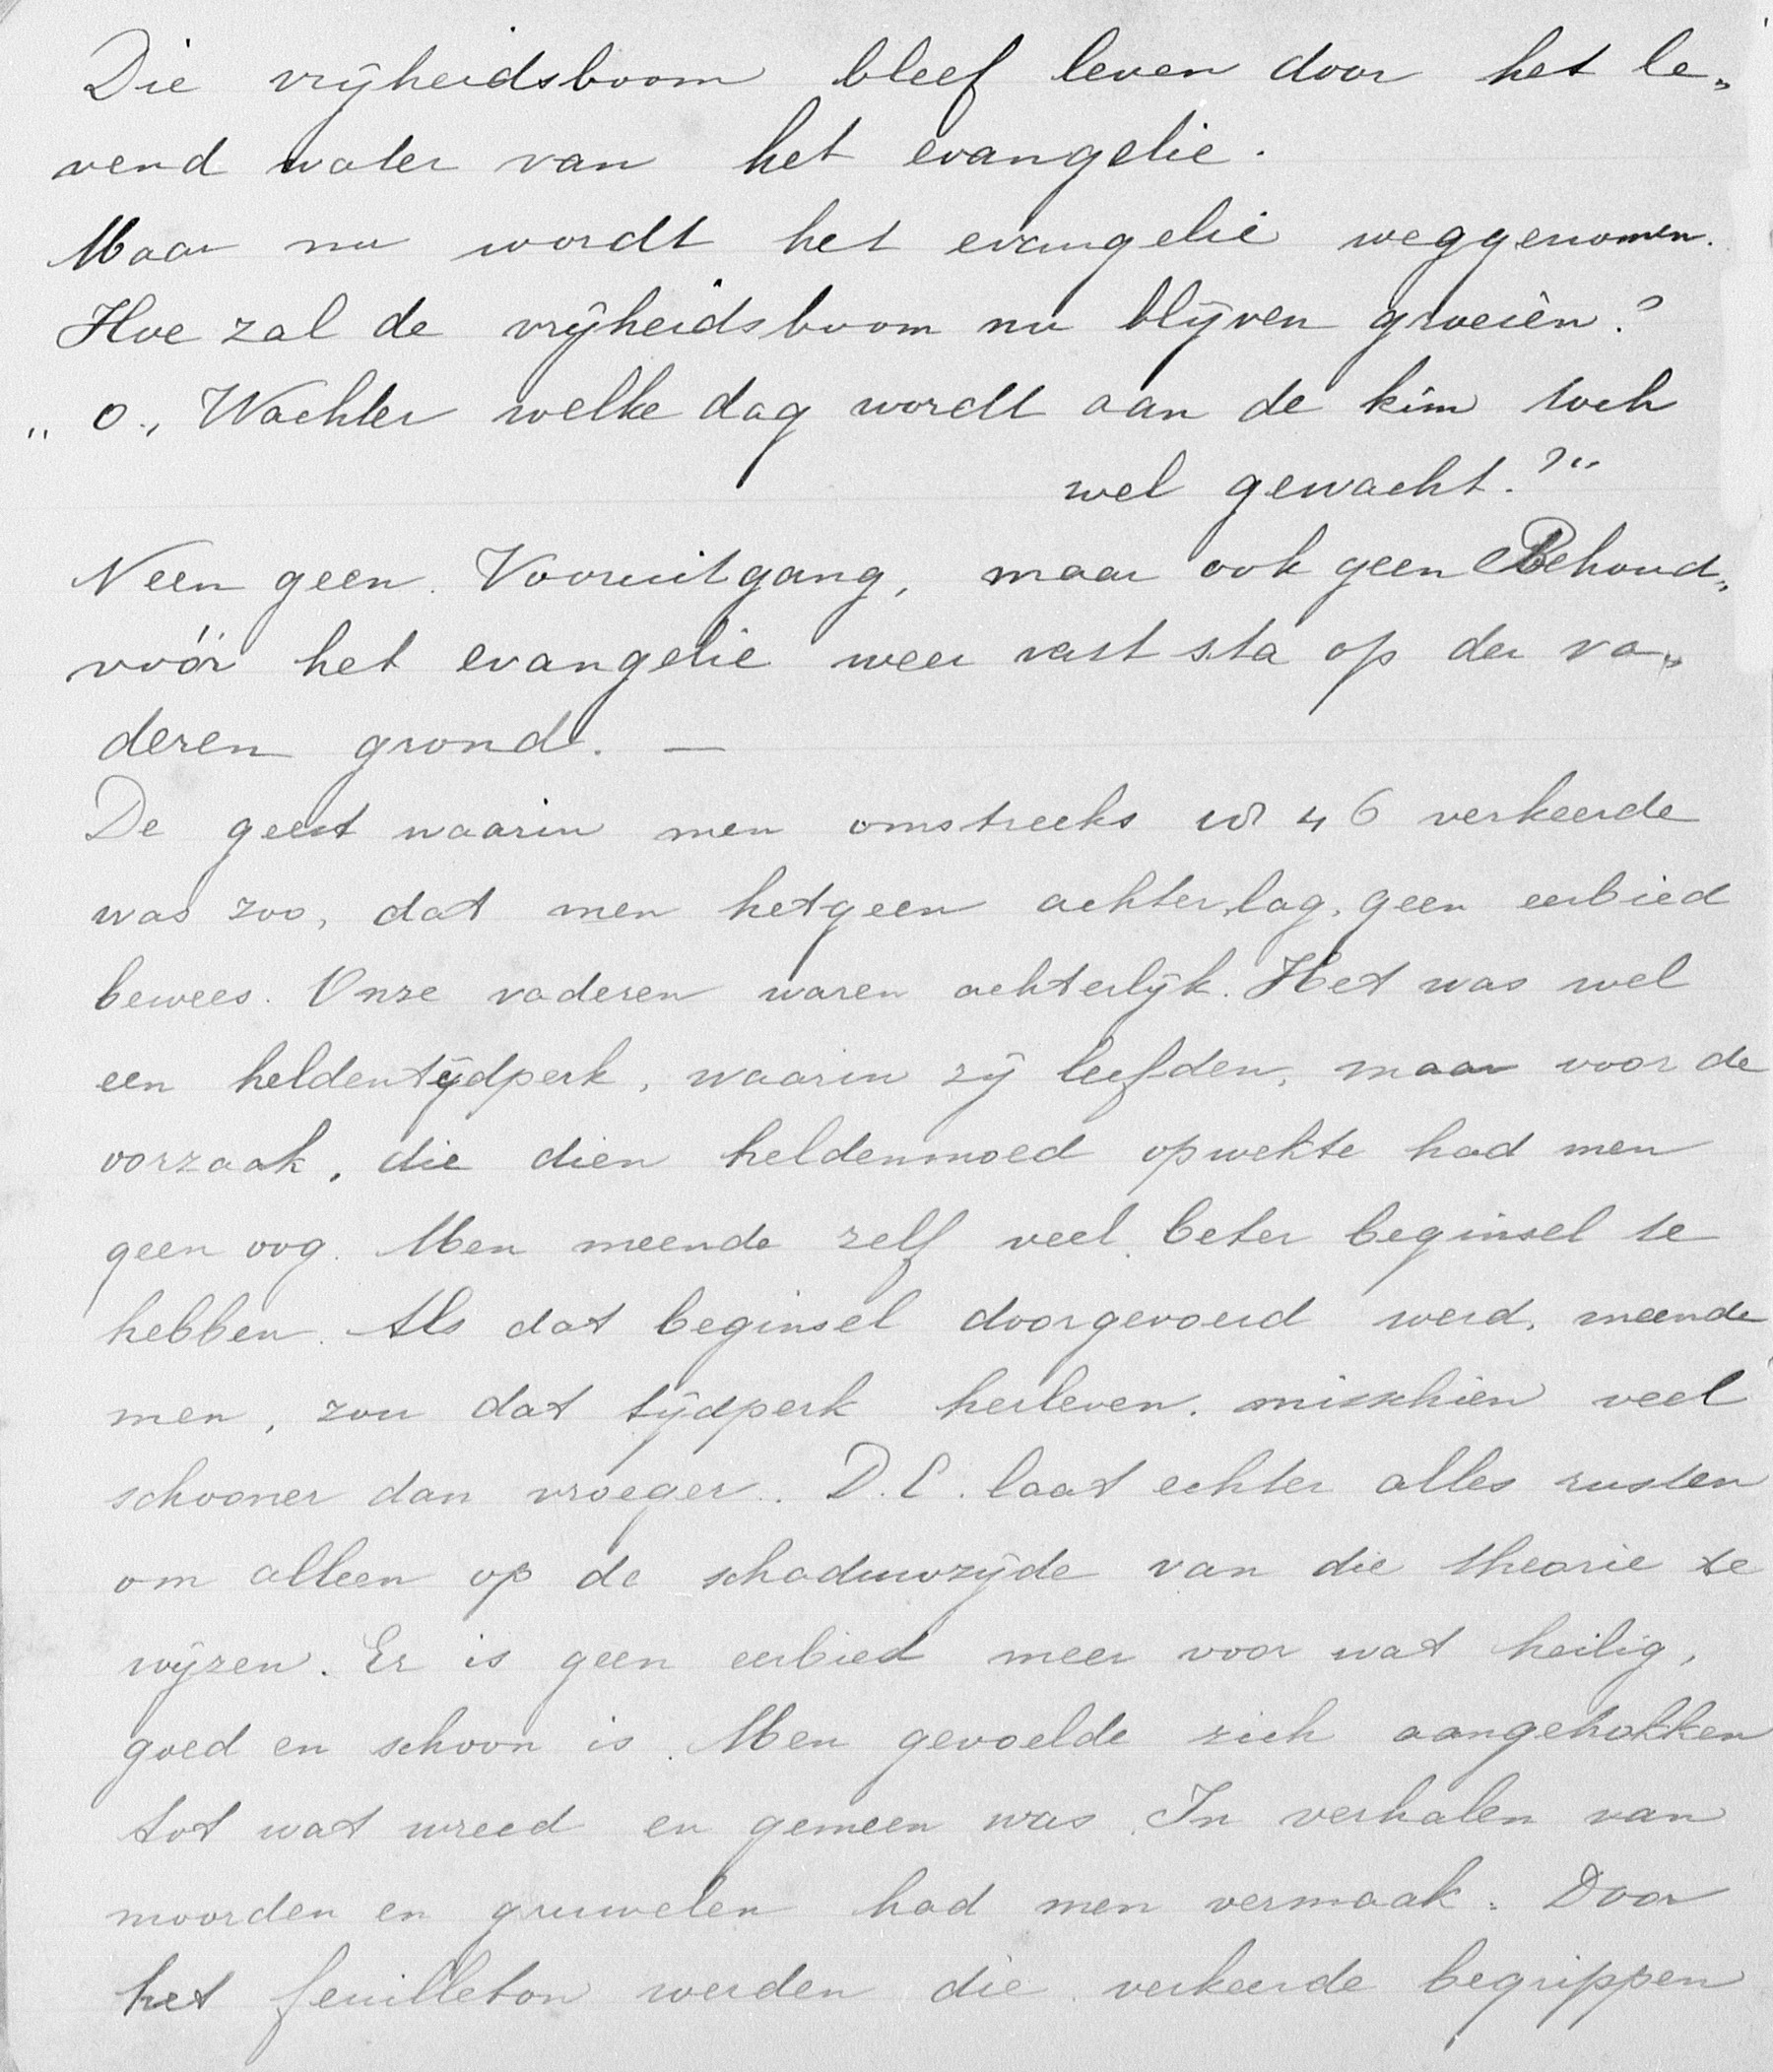 Die vrijheidsboom bleef leven door het le„
vend water van het evangelie.
Maar nu wordt het evangelie weggenomen.
Hoe zal de vrijheidsboom nu blijven groeiën?
„ O, Wachter welke dag wordt aan de kim toch
wel gewacht?"
Neen geen Vooruitgang, maar ook geen Behoud„
vóór het evangelie weer vast sta op der va„
deren grond. —
De geest waarin men omstreeks 1846 verkeerde
was zoo, dat men hetgeen achter lag, geen eerbied
bewees. Onze vaderen waren achterlijk. Het was wel
een heldentijdperk, waarin zij leefden, maar voor de
oorzaak, die dien heldenmoed opwekte had men
geen oog. Men meende zelf veel beter beginsel te
hebben. Als dat beginsel doorgevoerd werd, meende
men, zou dat tijdperk herleven, misschien veel
schooner dan vroeger. D.C. laat echter alles rusten
om alleen op de schaduwzijde van die theorie te
wijzen. Er is geen eerbied meer voor wat heilig,
goed en schoon is. Men gevoelde zich aangetrokken
tot wat wreed en gemeen was. In verhalen van
moorden en gruwelen had men vermaak. Door
het feuilleton werden die verkeerde begrippen